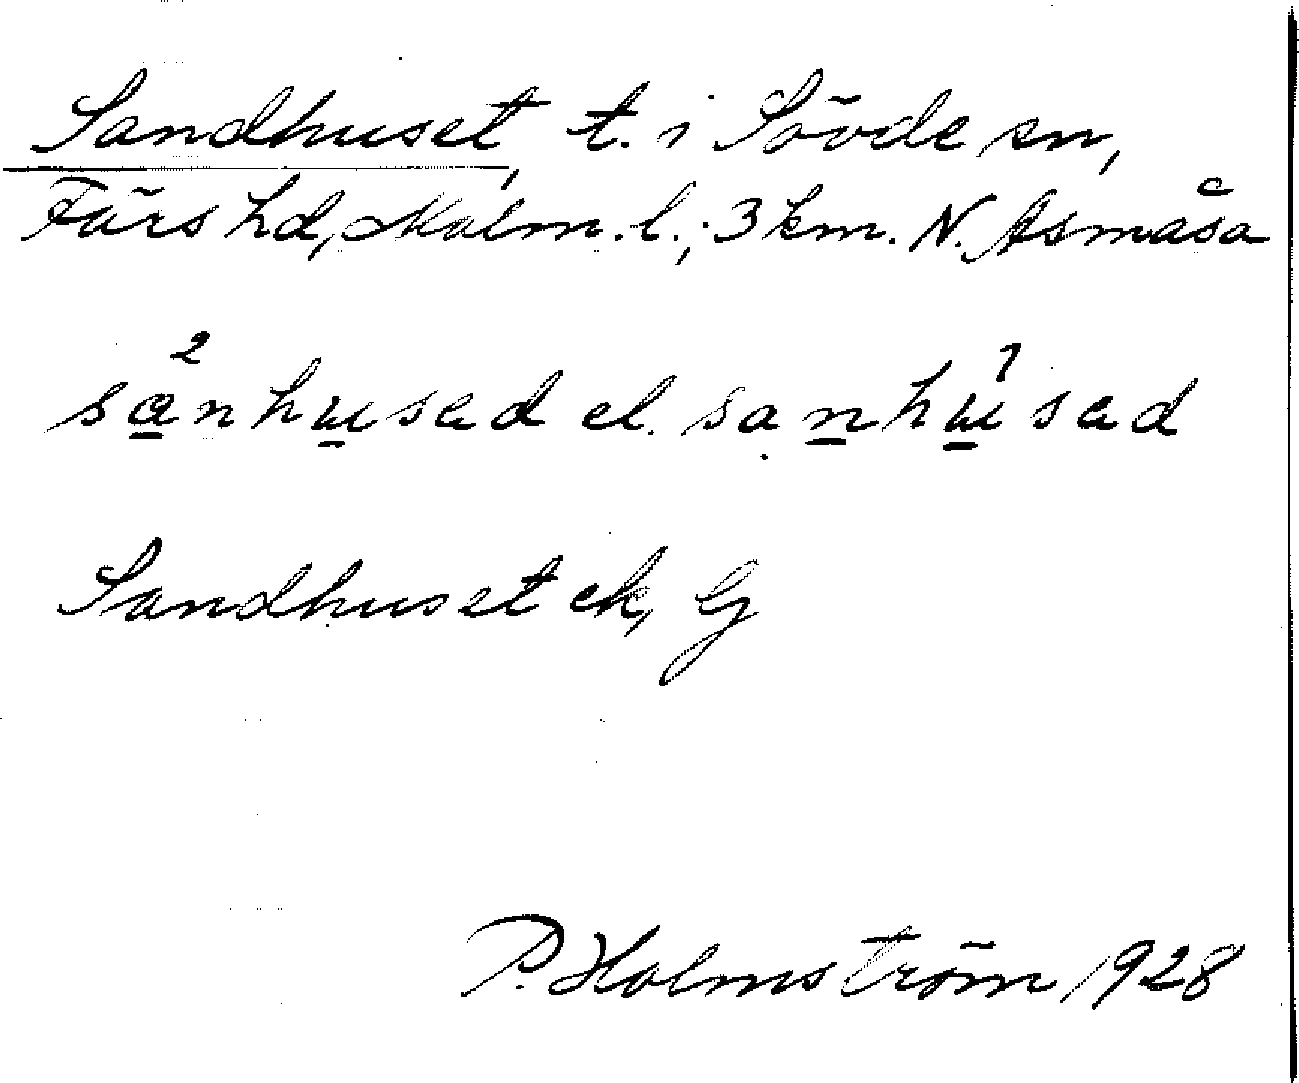 Sandhuset, t. i Sövde sn,
Färs hd, Malm. l.; 3 km. N. Åsmåsa
sa²nhusad el. sanhu¹sad
Sandhuset ek, G
P. Holmström 1928